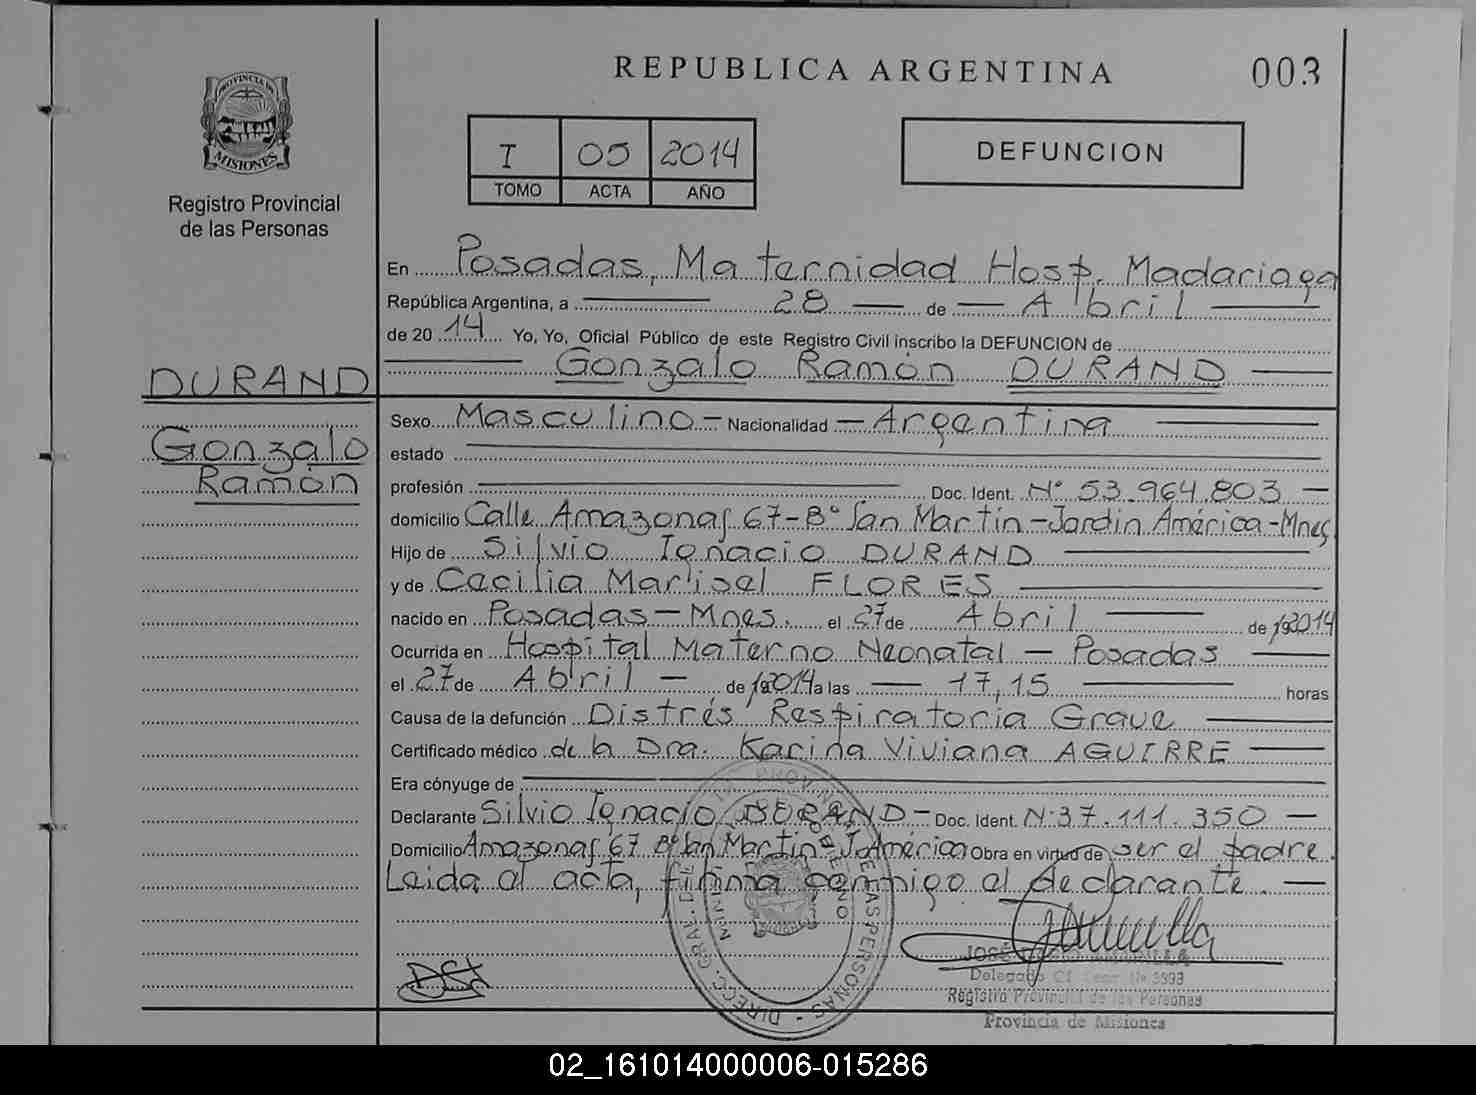 REPUBLICA ARGENTINA
003
PROVINCIA DE
MISIONES
Registro Provincial
de las Personas
I 05 2014
TOMO ACTA AÑO
DEFUNCION
En Posadas, Maternidad Hosp. Madariaga
República Argentina, a 28 de Abril
de 20 14 Yo, Yo, Oficial Público de este Registro Civil inscribo la DEFUNCION de
Gonzalo Ramón DURAND
DURAND
Gonzalo
Ramón
Sexo Masculino - Nacionalidad - Argentina
estado
profesión Doc. Ident. N° 53.964.803 -
domicilio Calle Amazonas 67-B° San Martín-Jardín América-Mnes
Hijo de Silvio Ignacio DURAND
y de Cecilia Marisel FLORES
nacido en Posadas-Mnes. el 27 de Abril de 19 2014
Ocurrida en Hospital Materno Neonatal - Posadas
el 27 de Abril - de 19 2014 a las 17,15 horas
Causa de la defunción Distrés Respiratoria Grave
Certificado médico de la Dra. Karina Viviana AGUIRRE
Era cónyuge de
Declarante Silvio Ignacio DURAND - Doc. Ident. N: 37.111.350 -
Domicilio Amazonas 67 B° San Martin - J. América Obra en virtud de ser el padre.
Leida el acta, firma conmigo el declarante. -
DIRECC. GRAL. DE PROV. DE LAS PERSONAS
JOSÉ
Delegado
Registro Provincial de las Personas
Provincia de Misiones
02_161014000006-015286